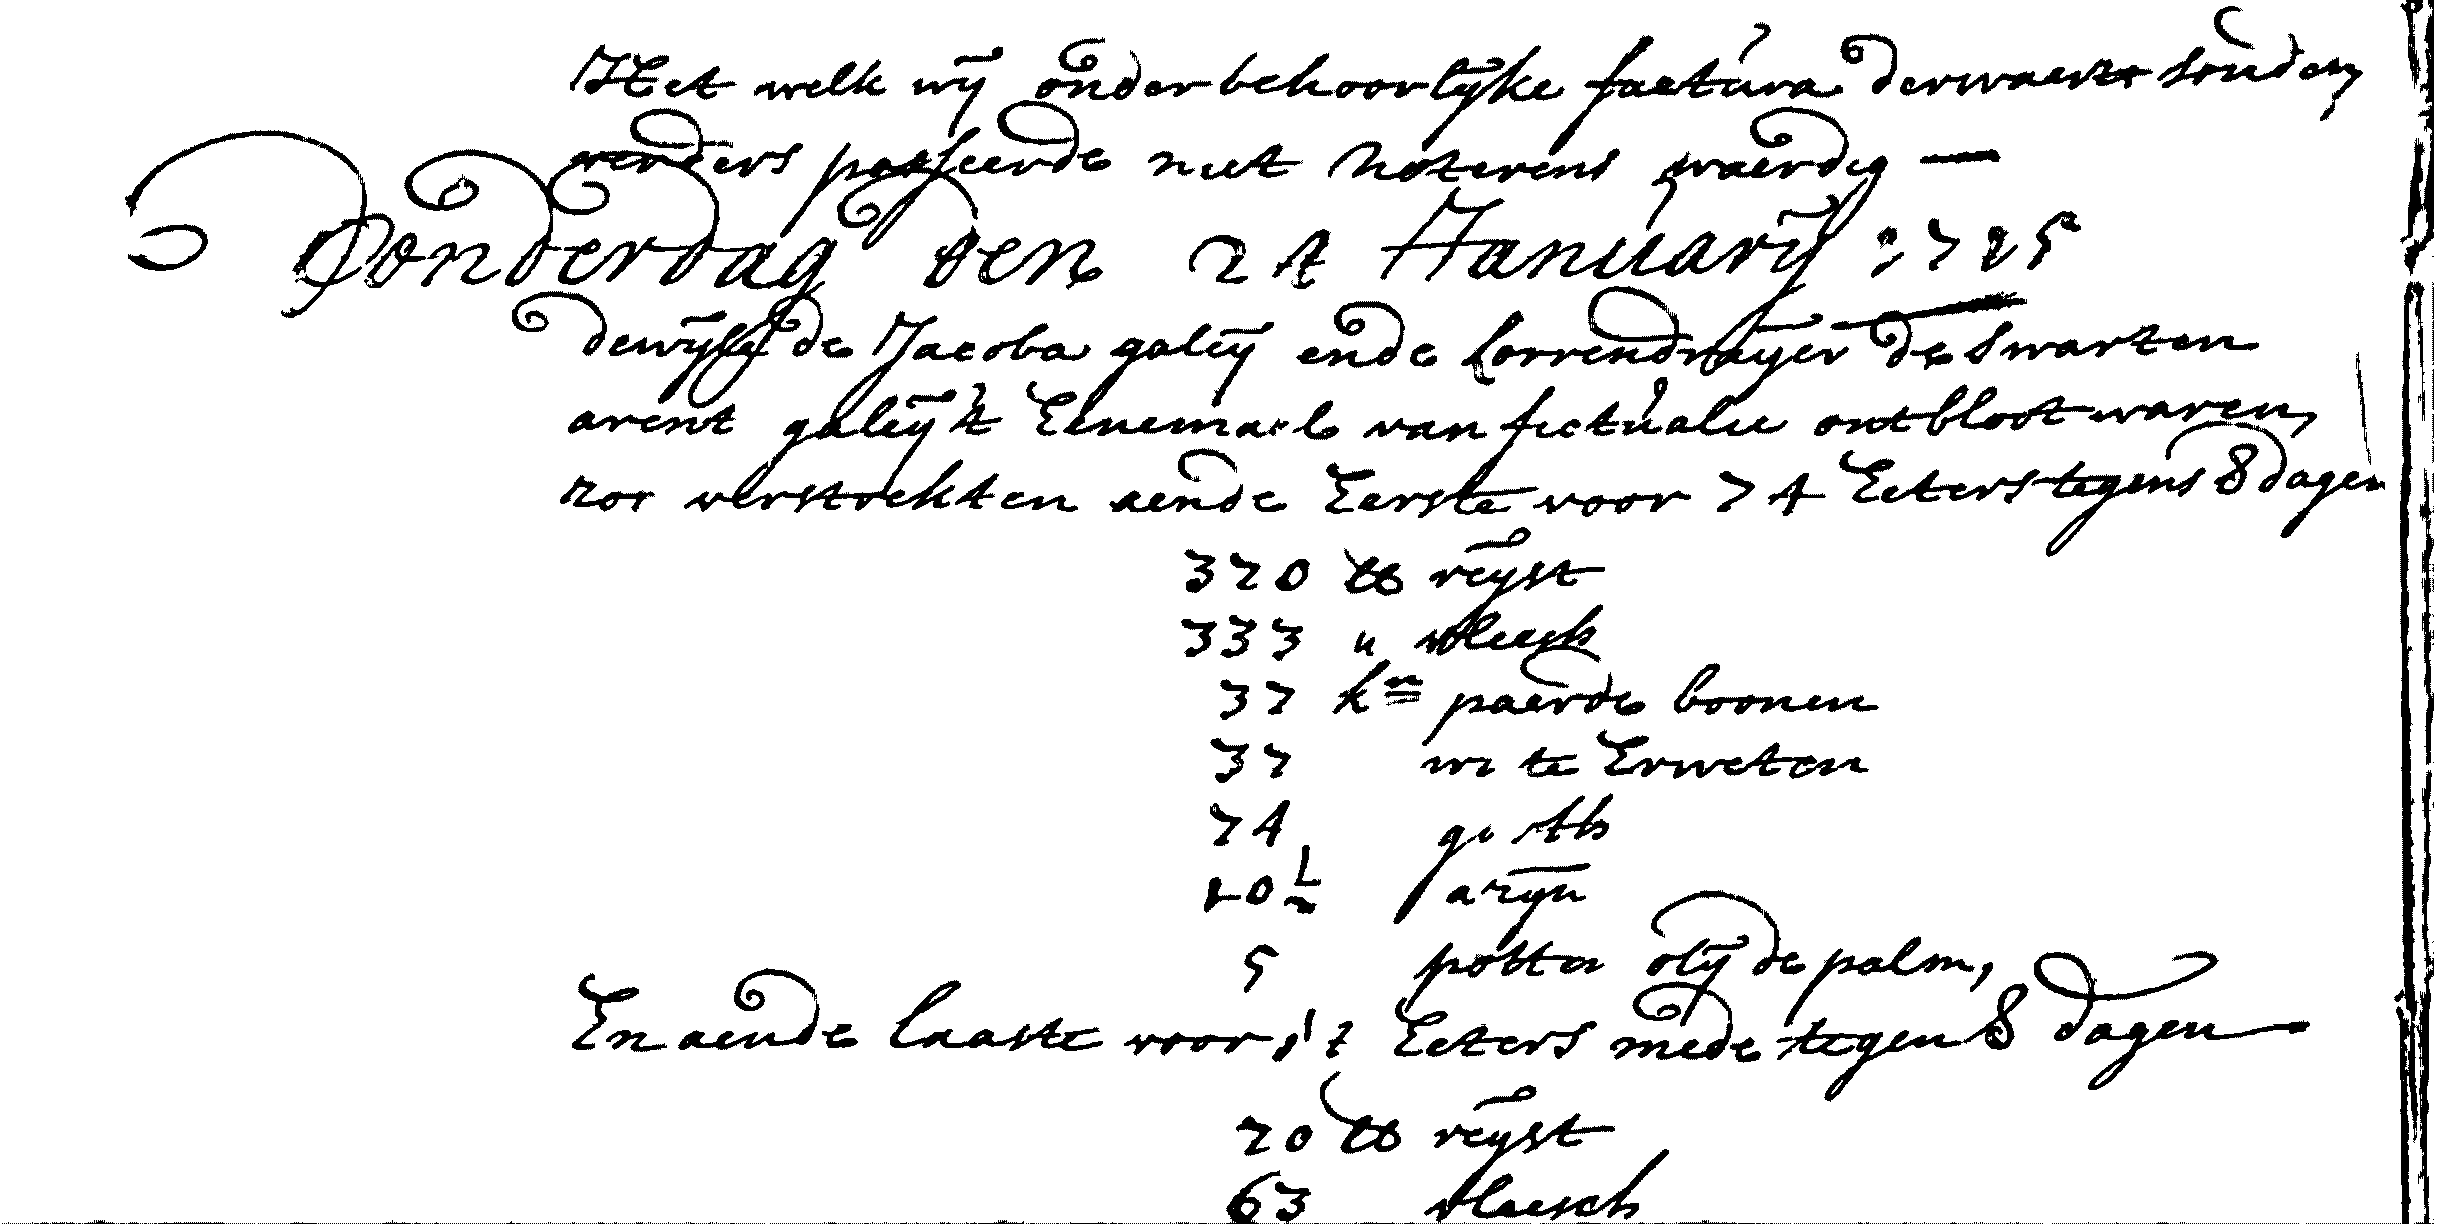 Het welk wij onder behoorlijke factura derwaerts sonden
verders passeerde niet noterens waerdig —
Donderdag den 24 Januarij 1725
dewijle de Jacoba galeij ende Lorrendrayer de Swarten
arent galeij 't Eenemael van fictualie ontbloot waren,
zoo verstrekten aende Eerste voor 74 Eeters tegens 8 dagen
320 lb reijst
333 " vleesch
37 kn paerde boonen
37 witte Erweten
74 gorth
10½ azijn
5 potten olij de palm,
En aende laaste voor 14 Eeters mede tegen 8 dagen
70 lb reijst
63 vleesch